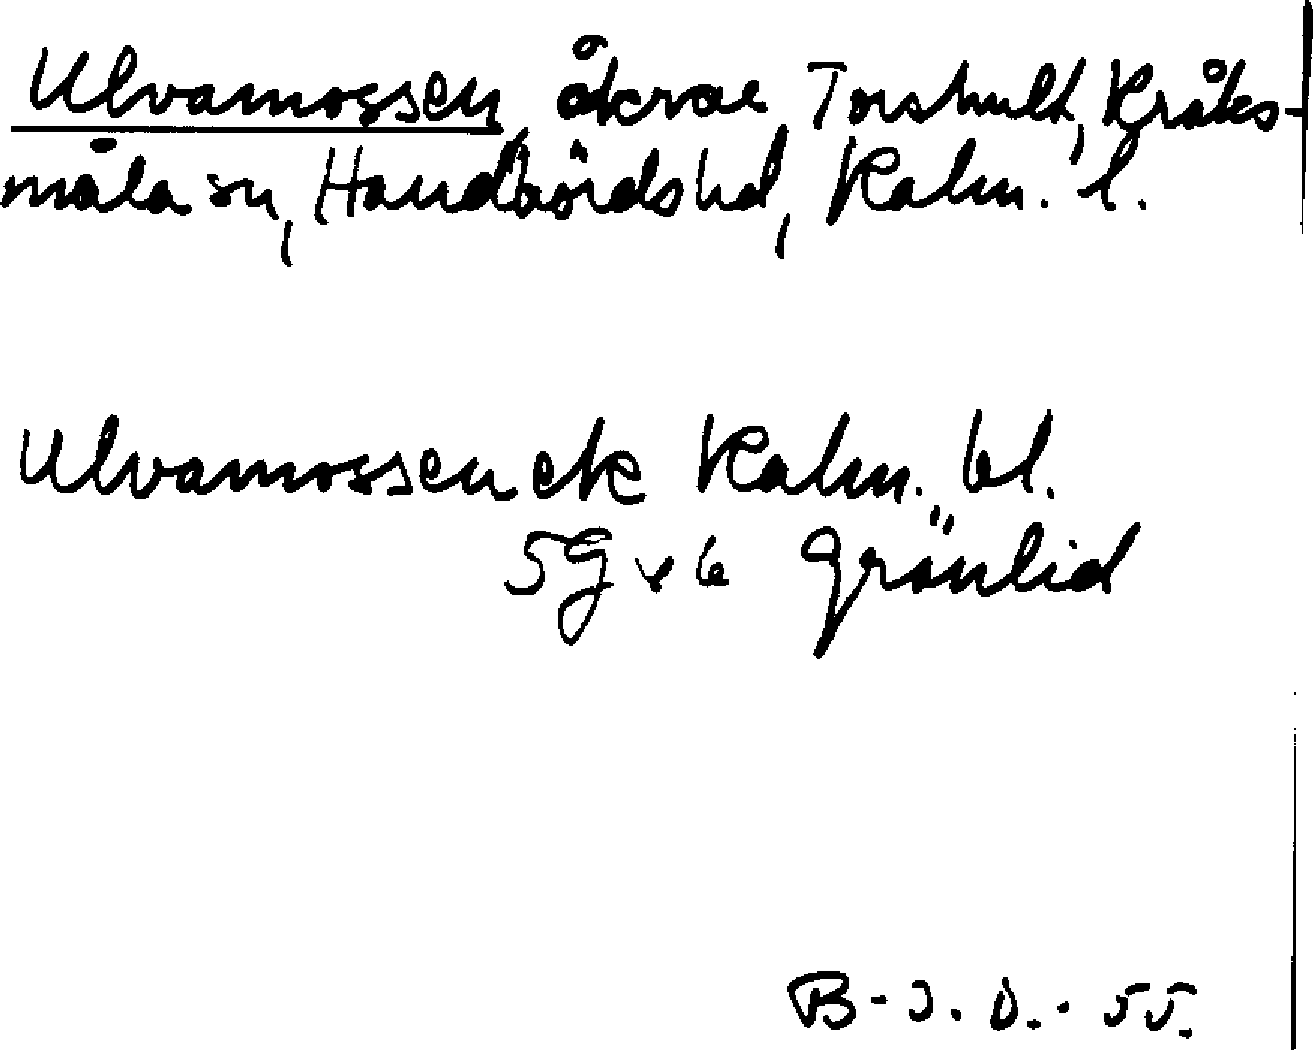 Ulvamossen, åkrar, Torshult, Kråks-
måla sn, Handbörds hd, Kalm. l.
Ulvamossen ek Kalm. bl.
5G v 6 Grönlid
B-J. O. - 55.